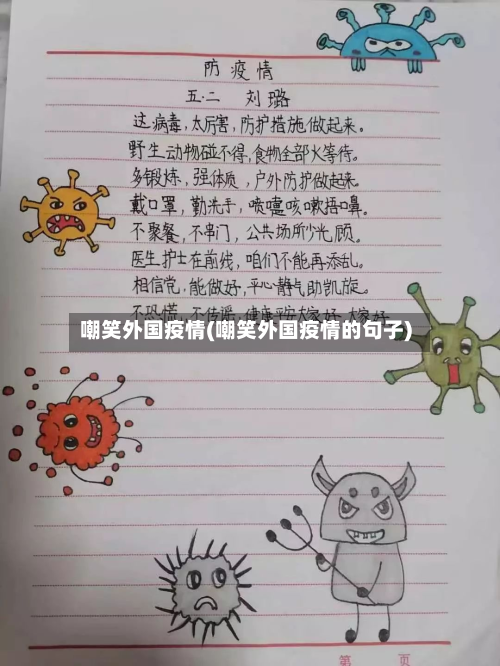 防疫情
五.二 刘璐
这病毒,太厉害,防护措施做起来。
野生动物碰不得,食物全部火等待。
多锻炼,强体质,户外防护做起来。
戴口罩,勤洗手,喷嚏咳嗽捂口鼻。
不聚餐,不串门,公共场所少光顾。
医生护士在前线,咱们不能再添乱。
相信党,能做好,平心静气助凯旋。
不恐慌,不传谣,健康平安大家好
嘲笑外国疫情(嘲笑外国疫情的句子)
第 页